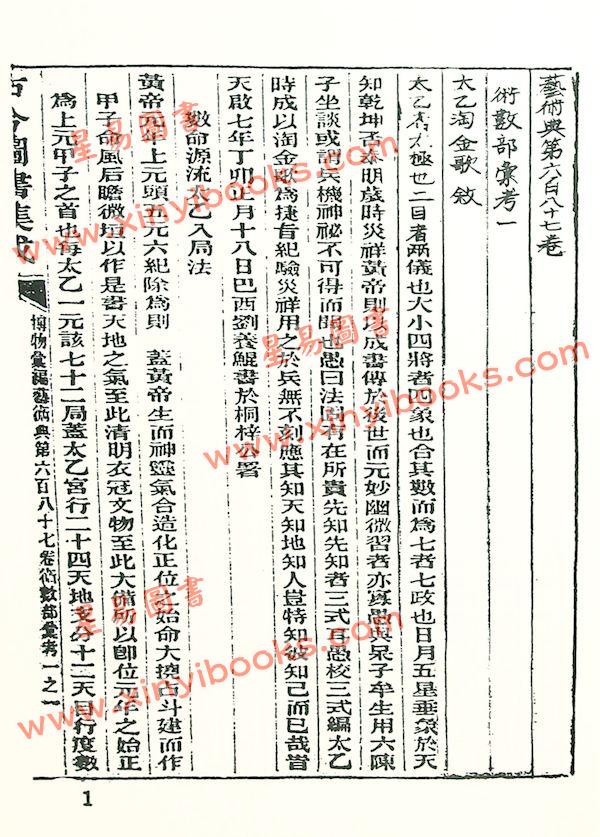 藝術典第六百八十七卷
術數部彙考一
太乙淘金歌敘
太乙者太極也二目者兩儀也大小四將者四象也合其數而為七者七政也日月五星垂象於天
知乾坤否泰明歲時災祥黃帝則以成書傳於後世而元妙幽微習者亦寡愚與呆子牟生用六陳
子坐談或謂兵機神祕不可得而聞也愚曰法固有在所貴先知先知者三式耳愚校三式編太乙
時成以淘金歌為捷首紀驗災祥用之於兵無不刻應其知天知地知人豈特知彼知己而已哉
天啟七年丁卯正月十八日巴西劉養鯤書於桐梓公署
數命源流太乙入局法
黃帝元年上元頭五元六紀除為則 蓋黃帝生而神靈氣合造化正位之始命大撓占斗建而作
甲子命風后瞻微垣以作是書天地之氣至此清明衣冠文物至此大備所以卽位元年之始正
為上元甲子之首也每太乙一元該七十二局蓋太乙宮行二十四天地支分十二天目行度數
古今圖書集成
博物彙編藝術典第六百八十七卷術數部彙考一之一
1
星易圖書
www.xinyibooks.com
星易圖書
www.xinyibooks.com
星易圖書
www.xinyibooks.com